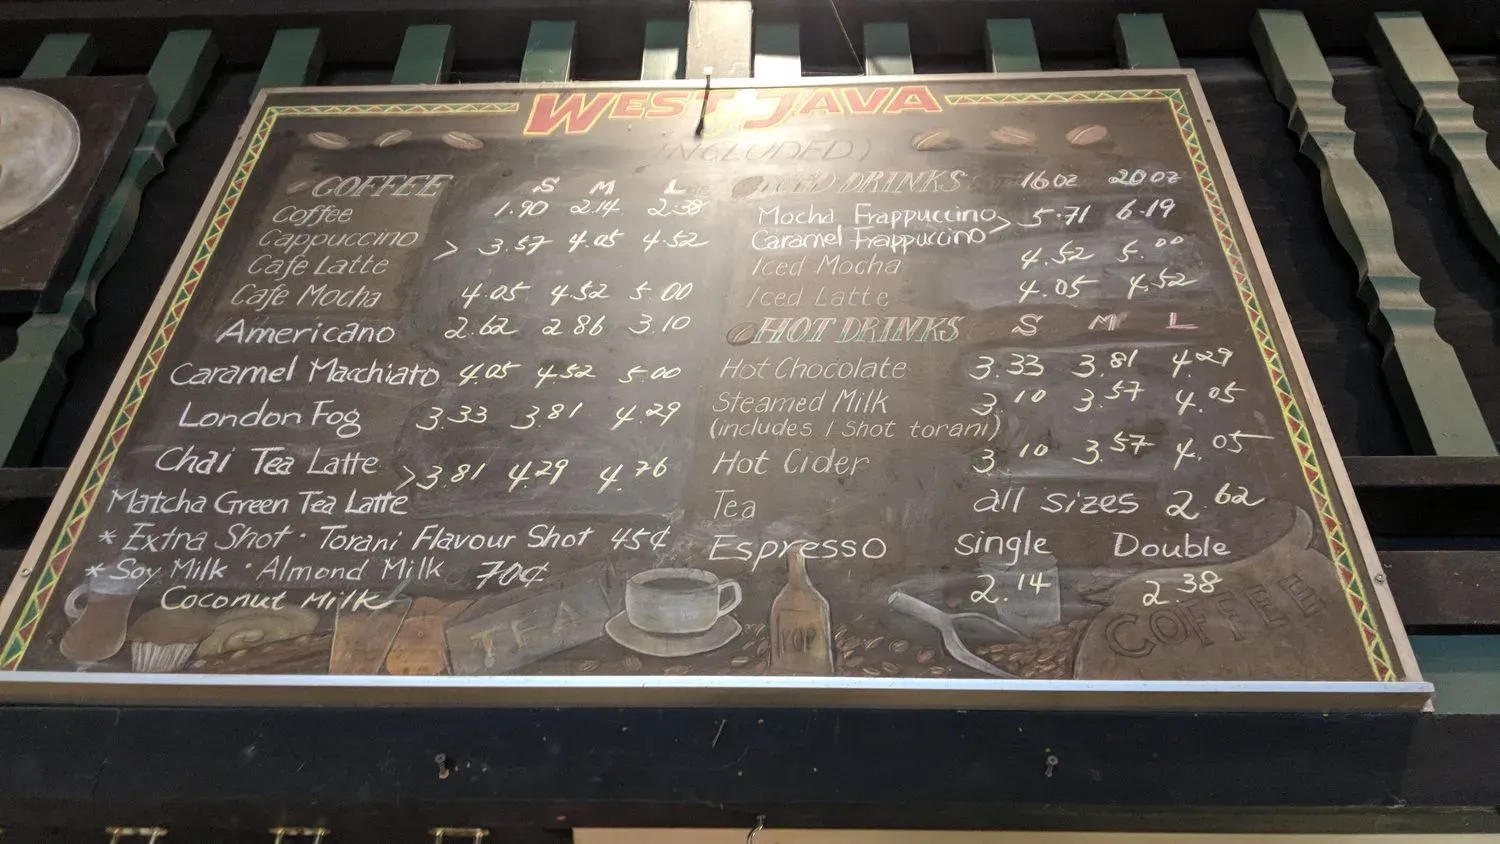 WEST JAVA
INCLUDED)
COFFEE S M L
Coffee 1.90 2.14 2.38
Cappuccino > 3.57 4.05 4.52
Cafe Latte
Cafe Mocha 4.05 4.52 5.00
Americano 2.62 2.86 3.10
Caramel Macchiato 4.05 4.52 5.00
London Fog 3.33 3.81 4.29
Chai Tea Latte > 3.81 4.29 4.76
Matcha Green Tea Latte
* Extra Shot · Torani Flavour Shot 45¢
* Soy Milk · Almond Milk 70¢
Coconut Milk
ICED DRINKS 16oz 20oz
Mocha Frappuccino > 5.71 6.19
Caramel Frappuccino
Iced Mocha 4.52 5.00
Iced Latte 4.05 4.52
HOT DRINKS S M L
Hot Chocolate 3.33 3.81 4.29
Steamed Milk 3.10 3.57 4.05
(includes 1 shot torani)
Hot Cider 3.10 3.57 4.05
Tea all sizes 2.62
Espresso Single Double
2.14 2.38
TEA
COFFEE